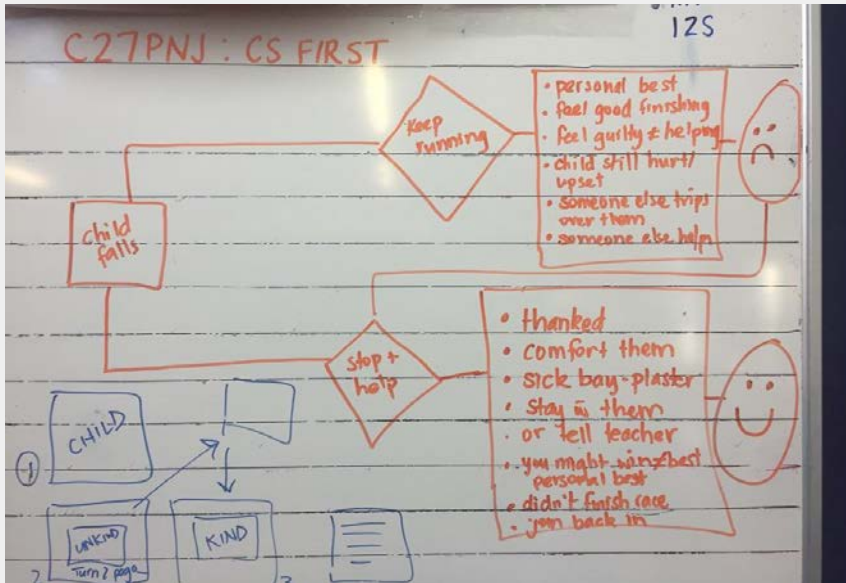 12S
C27PNJ : CS FIRST
Keep
running
• personal best
• feel good finishing
• feel guilty ≠ helping
• child still hurt/
upset
• someone else trips
over them
• someone else help
child
falls
stop +
help
• thanked
• comfort them
• sick bay-plaster
• stay w them
• or tell teacher
• you might win ≠ best
personal best
• didn't finish race
• join back in
1
CHILD
2
UNKIND
Turn 2 page
KIND
3